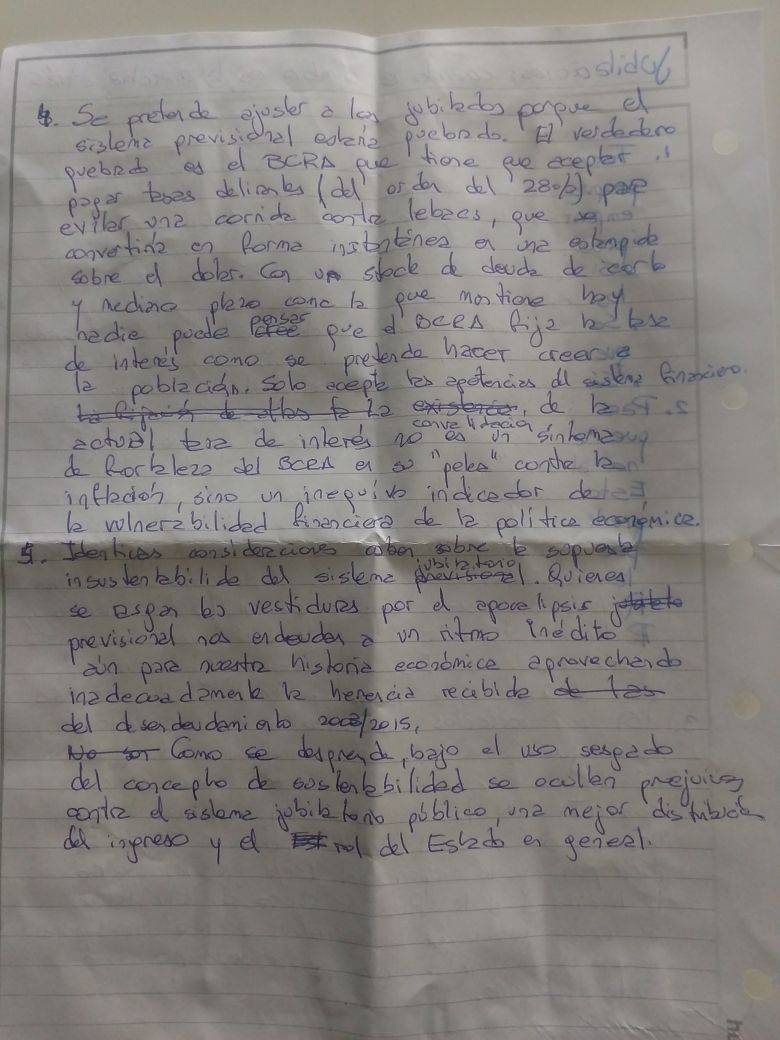 4. Se pretende ajustar a los jubilados porque el
sistema previsional estaría quebrado. El verdadero
quebrado es el BCRA que tiene que aceptar
pagar tasas delirantes (del orden del 28%) para
evitar una corrida contra lebacs, que se
convertiría en forma instantánea en una estampida
sobre el dolar. Con un stock de deuda de corto
y mediano plazo como la que mantiene hoy
nadie puede pensar que el BCRA fija la tasa
de interés como se pretende hacer creer a
la población. Solo acepta las apetencias del sistema financiero.
La convalidación de la
actual tasa de interés no es un síntoma
de fortaleza del BCRA en su "pelea" contra la
inflación, sino un inequívo indicador de
la vulnerabilidad financiera de la política económica.
5. Identicas consideraciones caben sobre la supuesta
insustentabilida del sistema jubilatorio. Quienes
se rasgan las vestiduras por el apocalipsis
previsional nos endeudan a un ritmo inédito
aún para nuestra historia económica aprovechando
inadecuadamente la herencia recibida
del desendeudamiento 2003/2015,
Como se desprende, bajo el uso sesgado
del concepto de sustentabilidad se ocultan prejuicios
contra el sistema jubilatorio público, una mejor distribución
del ingreso y el rol del Estado en general.